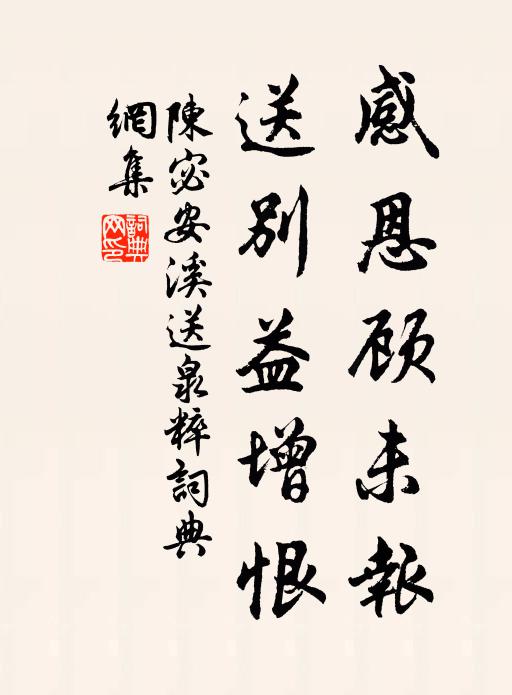 感恩顾未報
送别益增恨
陳宓安溪送泉粹詞典
網集
詞典
网印